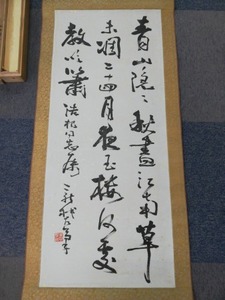 青山隱〻秋盡江南草
未凋二十四月夜玉何處
教吹簫
同志屬